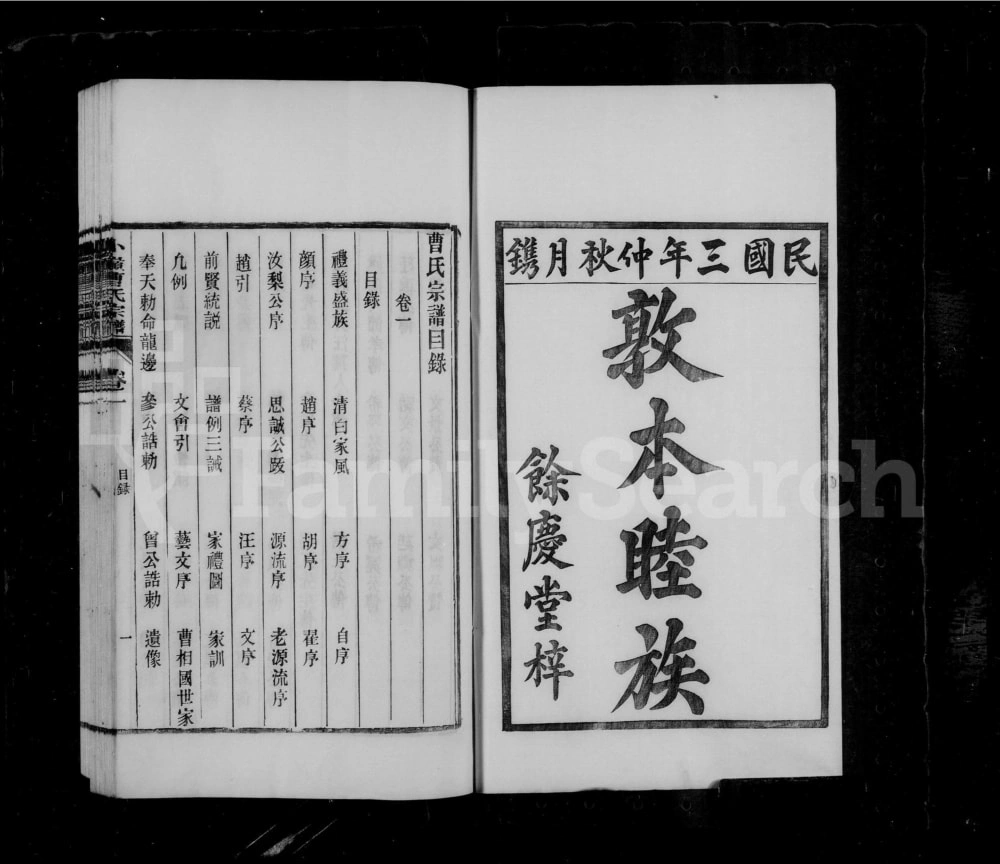 民國三年仲秋月鐫
敦本睦族
餘慶堂梓
曹氏宗譜目錄
卷一
目錄
禮義盛族 清白家風 方序 自序
顏序 趙序 胡序 翟序
汝梨公序 思誠公跋 源流序 老源流序
趙引 蔡序 汪序 文序
前賢統説 譜例三誡 家禮圖 家訓
凡例 文會引 藝文序 曹相國世家
奉天勅命龍邊 參公誥勅 曾公誥勅 遺像
曹氏宗譜 卷一 目錄 一
FamilySearch